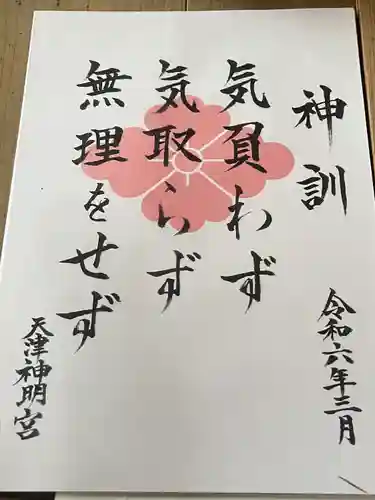 神訓
気負わず
気取らず
無理をせず
令和六年三月
天津神明宮